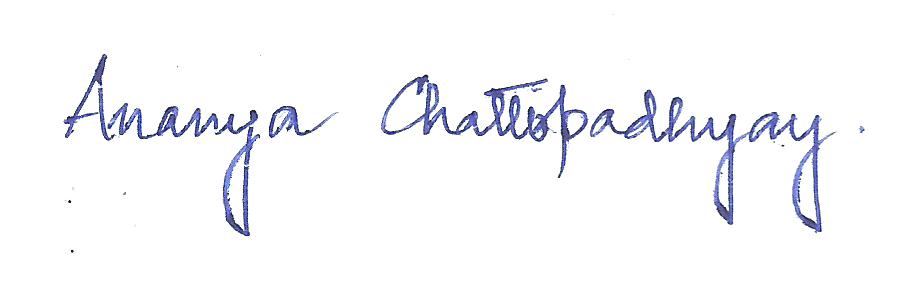 Ananya Chattopadhyay.